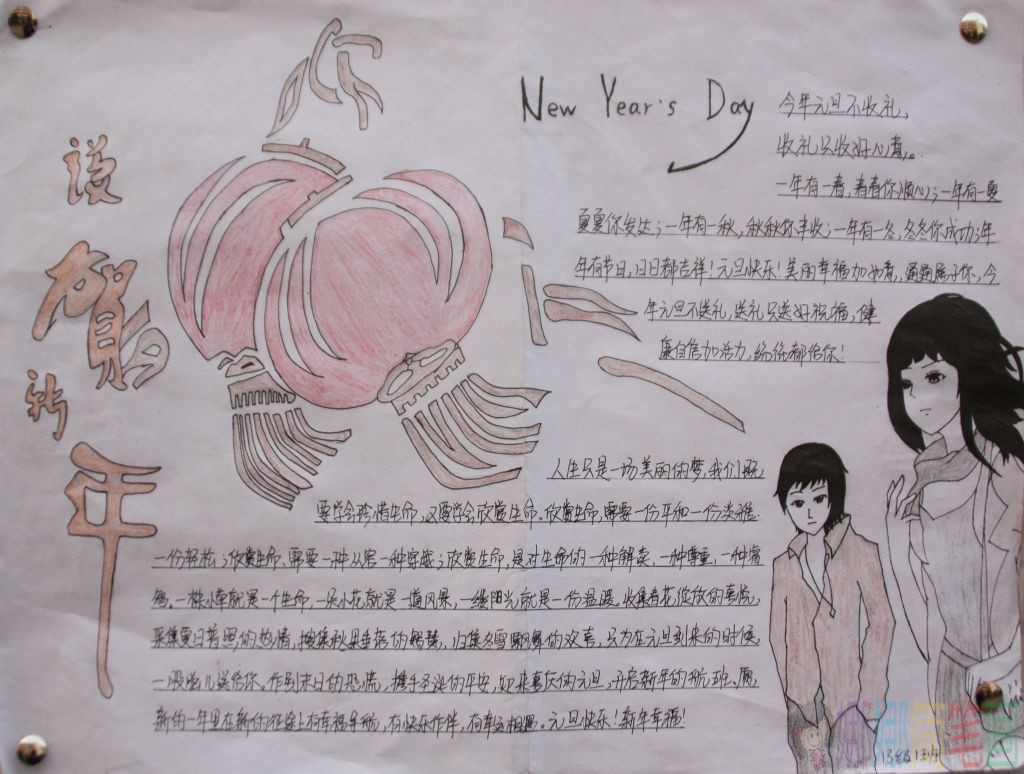 说
贺
新
年
New Year's Day
今年元旦不收礼,
收礼只收好心意。
一年有一春,春春你顺心;一年有一夏
夏夏你发达;一年有一秋,秋秋你丰收;一年有一冬,冬冬你成功;年
年有节日,日日都吉祥!元旦快乐!美丽幸福加如意,通通属于你,今
年元旦不送礼,送礼只送好祝福,健
康自信加活力,统统都给你!
人生只是一场美丽的梦,我们既
要学会珍惜生命,又要学会欣赏生命。欣赏生命,需要一份平和一份淡雅
一份轻松;欣赏生命,需要一种从容一种穿越;欣赏生命,是对生命的一种解读,一种尊重,一种
一株小草就是一个生命,一朵小花就是一道风景,一缕阳光就是一份温暖。收集春花绽放的喜悦,
采集夏日普照的热情,搜集秋果垂落的智慧,归集冬雪飘舞的欢喜,只为在元旦到来的时候
一股脑儿送给你。作别末日的恐慌,携手圣诞的平安,迎来喜庆的元旦,开启新年的航班。愿
新的一年里在新的征途上有幸福导航,有快乐作伴,有幸运相随。元旦快乐!新年幸福!
13级1班